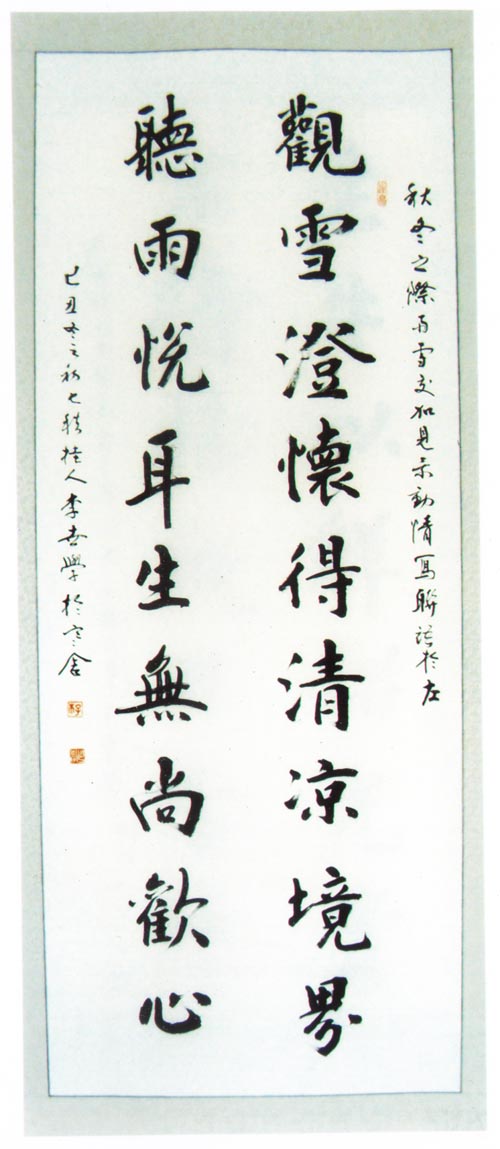 秋冬之際雨雪交加見景動情寫聯語於左
觀雪澄懷得清凉境界
聽雨悅耳生無尚歡心
己丑冬之初七人李學於寒舍